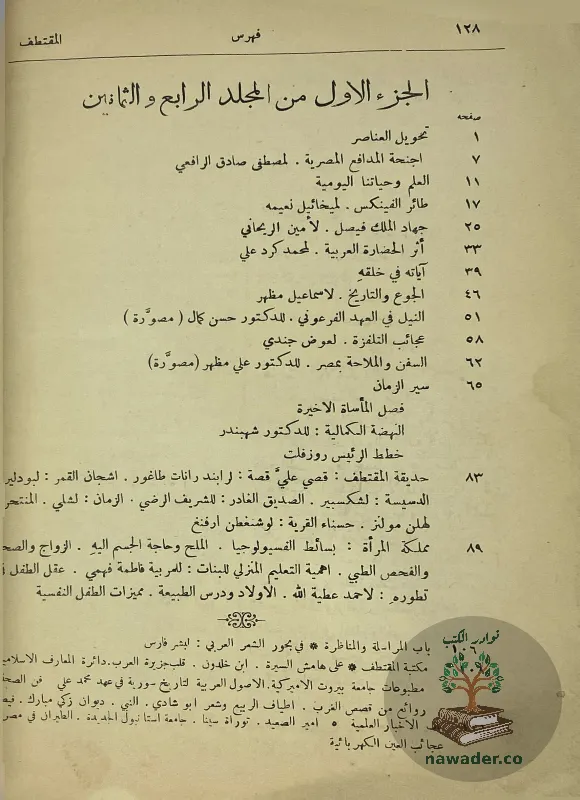 ١٢٨ فهرس المقتطف
الجزء الاول من المجلد الرابع والثمانين
صفحه
١ تحويل العناصر
٧ اجنحة المدافع المصرية . لمصطفى صادق الرافعي
١١ العلم وحياتنا اليومية
١٧ طائر الفينكس . لميخائيل نعيمه
٢٥ جهاد الملك فيصل . لأمين الريحاني
٣٣ أثر الحضارة العربية . لمحمد كرد علي
٣٩ آياته في خلقهِ
٤٦ الجوع والتاريخ . لاسماعيل مظهر
٥١ النيل في العهد الفرعوني . للدكتور حسن كمال ( مصوَّرة )
٥٨ عجائب التلفزة . لعوض جندي
٦٢ السفن والملاحة بمصر . للدكتور علي مظهر (مصوَّرة)
٦٥ سير الزمان
فصل المأساة الاخيرة
النهضة الكمالية : للدكتور شهبندر
خطط الرئيس روزفلت
٨٣ حديقة المقتطف : قصي عليَّ قصة : لرابندرانات طاغور . اشجان القمر : لبودلير
الدسيسة : لشكسبير . الصديق الغادر : للشريف الرضي . الزمان : لشلي . المنتحر
لهلن مولنز . حسناء القرية : لوشنغطن ارفنغ
٨٩ مملكة المرأة : بسائط الفسيولوجيا . الملح وحاجة الجسم اليهِ . الزواج والصح
والفحص الطبي . اهمية التعليم المنزلي للبنات : للمربية فاطمة فهمي . عقل الطفل
تطوره : لاحمد عطية الله . الاولاد ودرس الطبيعة . مميزات الطفل النفسية
١٠٦ باب المراسلة والمناظرة * في بحور الشعر العربي : لبشر فارس
مكتبة المقتطف * على هامش السيرة . ابن خلدون . قلب جزيرة العرب . دائرة المعارف الاسلامي
مطبوعات جامعة بيروت الاميركية . الاصول العربية لتاريخ سورية في عهد محمد علي . فن الصحا
روائع من قصص الغرب . اطياف الربيع وشعر ابو شادي . النبي . ديوان زكي مبارك .
الاخبار العلمية * امير الصعيد . توراة سينا . جامعة استانبول الجديدة . الطيران في مصر
عجائب العين الكهربائية
نوادر الكتب
nawader.co